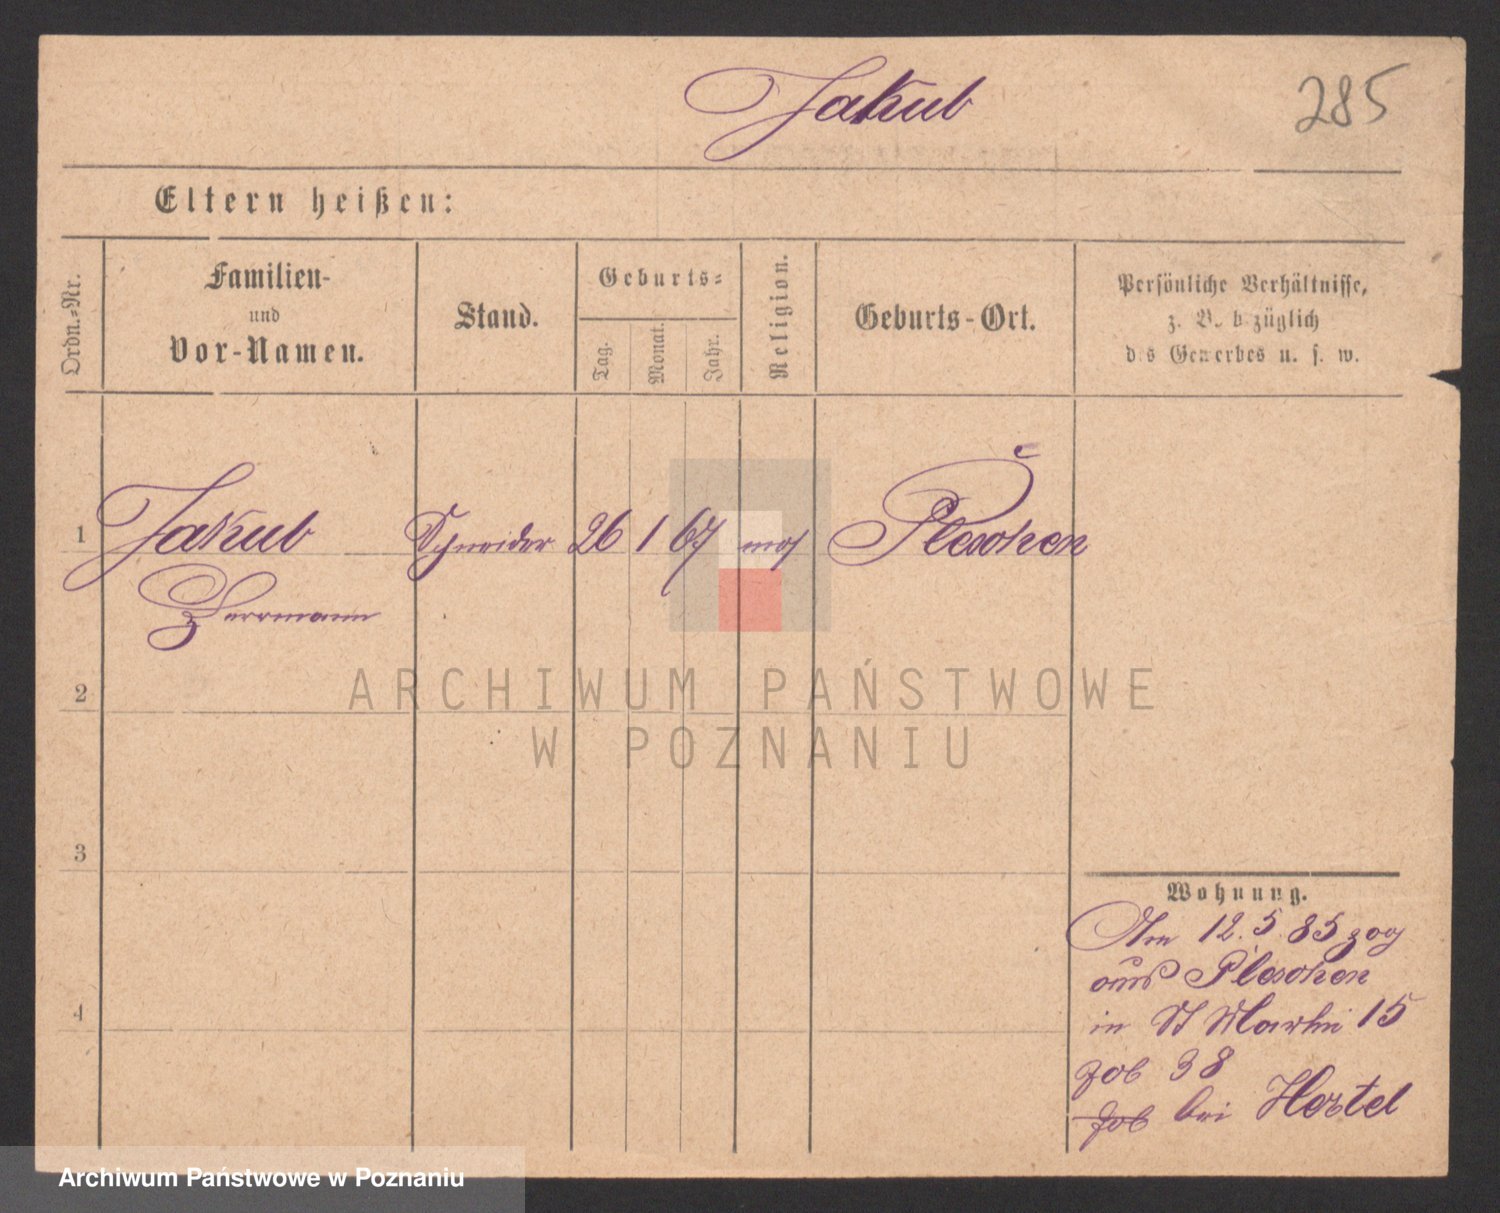 Jakub
285
Eltern heißen:
Ordn.-Nr.
Familien-
und
Vor-Namen.
Stand.
Geburts-
Tag.
Monat.
Jahr.
Religion.
Geburts-Ort.
Persönliche Verhältnisse,
z. B. bezüglich
des Gewerbes u. s. w.
1
Jakub
Schneider
26
1
67
mos
Pleschen
Herrmann
2
ARCHIWUM PAŃSTWOWE
W POZNANIU
3
Wohnung.
Am 12.5.85 zog
aus Pleschen
in St Martin 15
38
4
bei Hertel
Archiwum Państwowe w Poznaniu